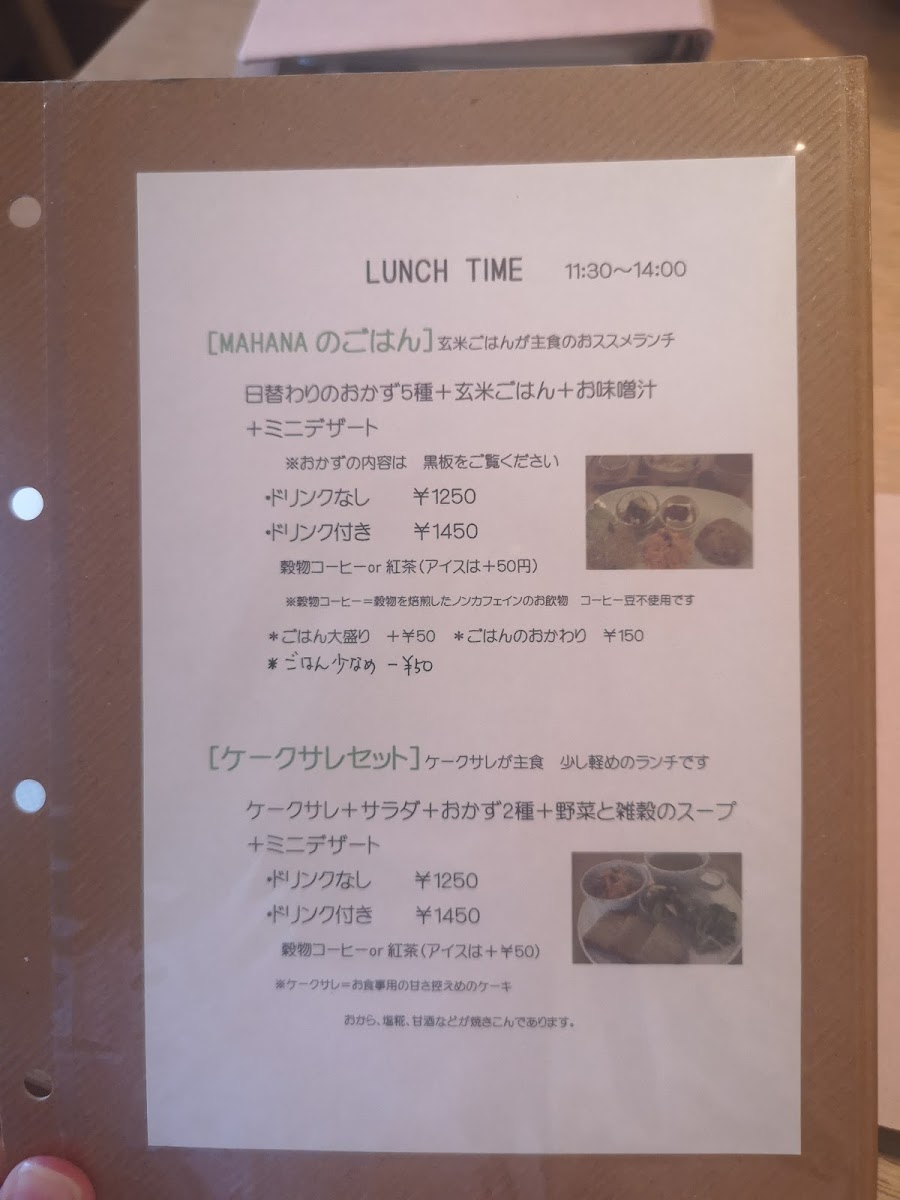 LUNCH TIME 11:30～14:00
[MAHANA のごはん] 玄米ごはんが主食のおススメランチ
日替わりのおかず5種＋玄米ごはん＋お味噌汁
＋ミニデザート
※おかずの内容は 黒板をご覧ください
・ドリンクなし ￥1250
・ドリンク付き ￥1450
穀物コーヒーor 紅茶（アイスは＋50円）
※穀物コーヒー＝穀物を焙煎したノンカフェインのお飲物 コーヒー豆不使用です
＊ごはん大盛り ＋￥50 ＊ごはんのおかわり ￥150
＊ごはん少なめ －￥50
[ケークサレセット] ケークサレが主食 少し軽めのランチです
ケークサレ＋サラダ＋おかず2種＋野菜と雑穀のスープ
＋ミニデザート
・ドリンクなし ￥1250
・ドリンク付き ￥1450
穀物コーヒーor 紅茶（アイスは＋￥50）
※ケークサレ＝お食事用の甘さ控えめのケーキ
おから、塩糀、甘酒などが焼きこんであります。